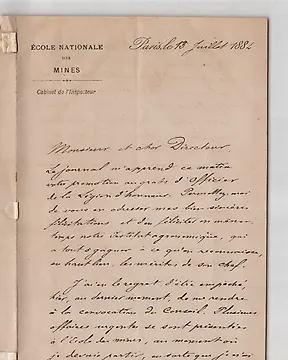 ÉCOLE NATIONALE
DES
MINES
Cabinet de l'Inspecteur
Paris, le 18 Juillet 1884
Monsieur et cher Directeur,
Le journal m'apprend ce matin
votre promotion au grade d'Officier
de la Légion d'honneur. Permettez-moi
de vous en adresser mes bien sincères
félicitations et d'en féliciter en même
temps notre institut agronomique, qui
a tout à gagner à ce qu'on reconnaisse,
en haut lieu, les mérites de son chef.
J'ai eu le regret d'être empêché,
hier, au dernier moment, de me rendre
à la convocation du Conseil. Plusieurs
affaires urgentes se sont présentées
à l'Ecole des mines, au moment où
je devais partir, en sorte que j'ai